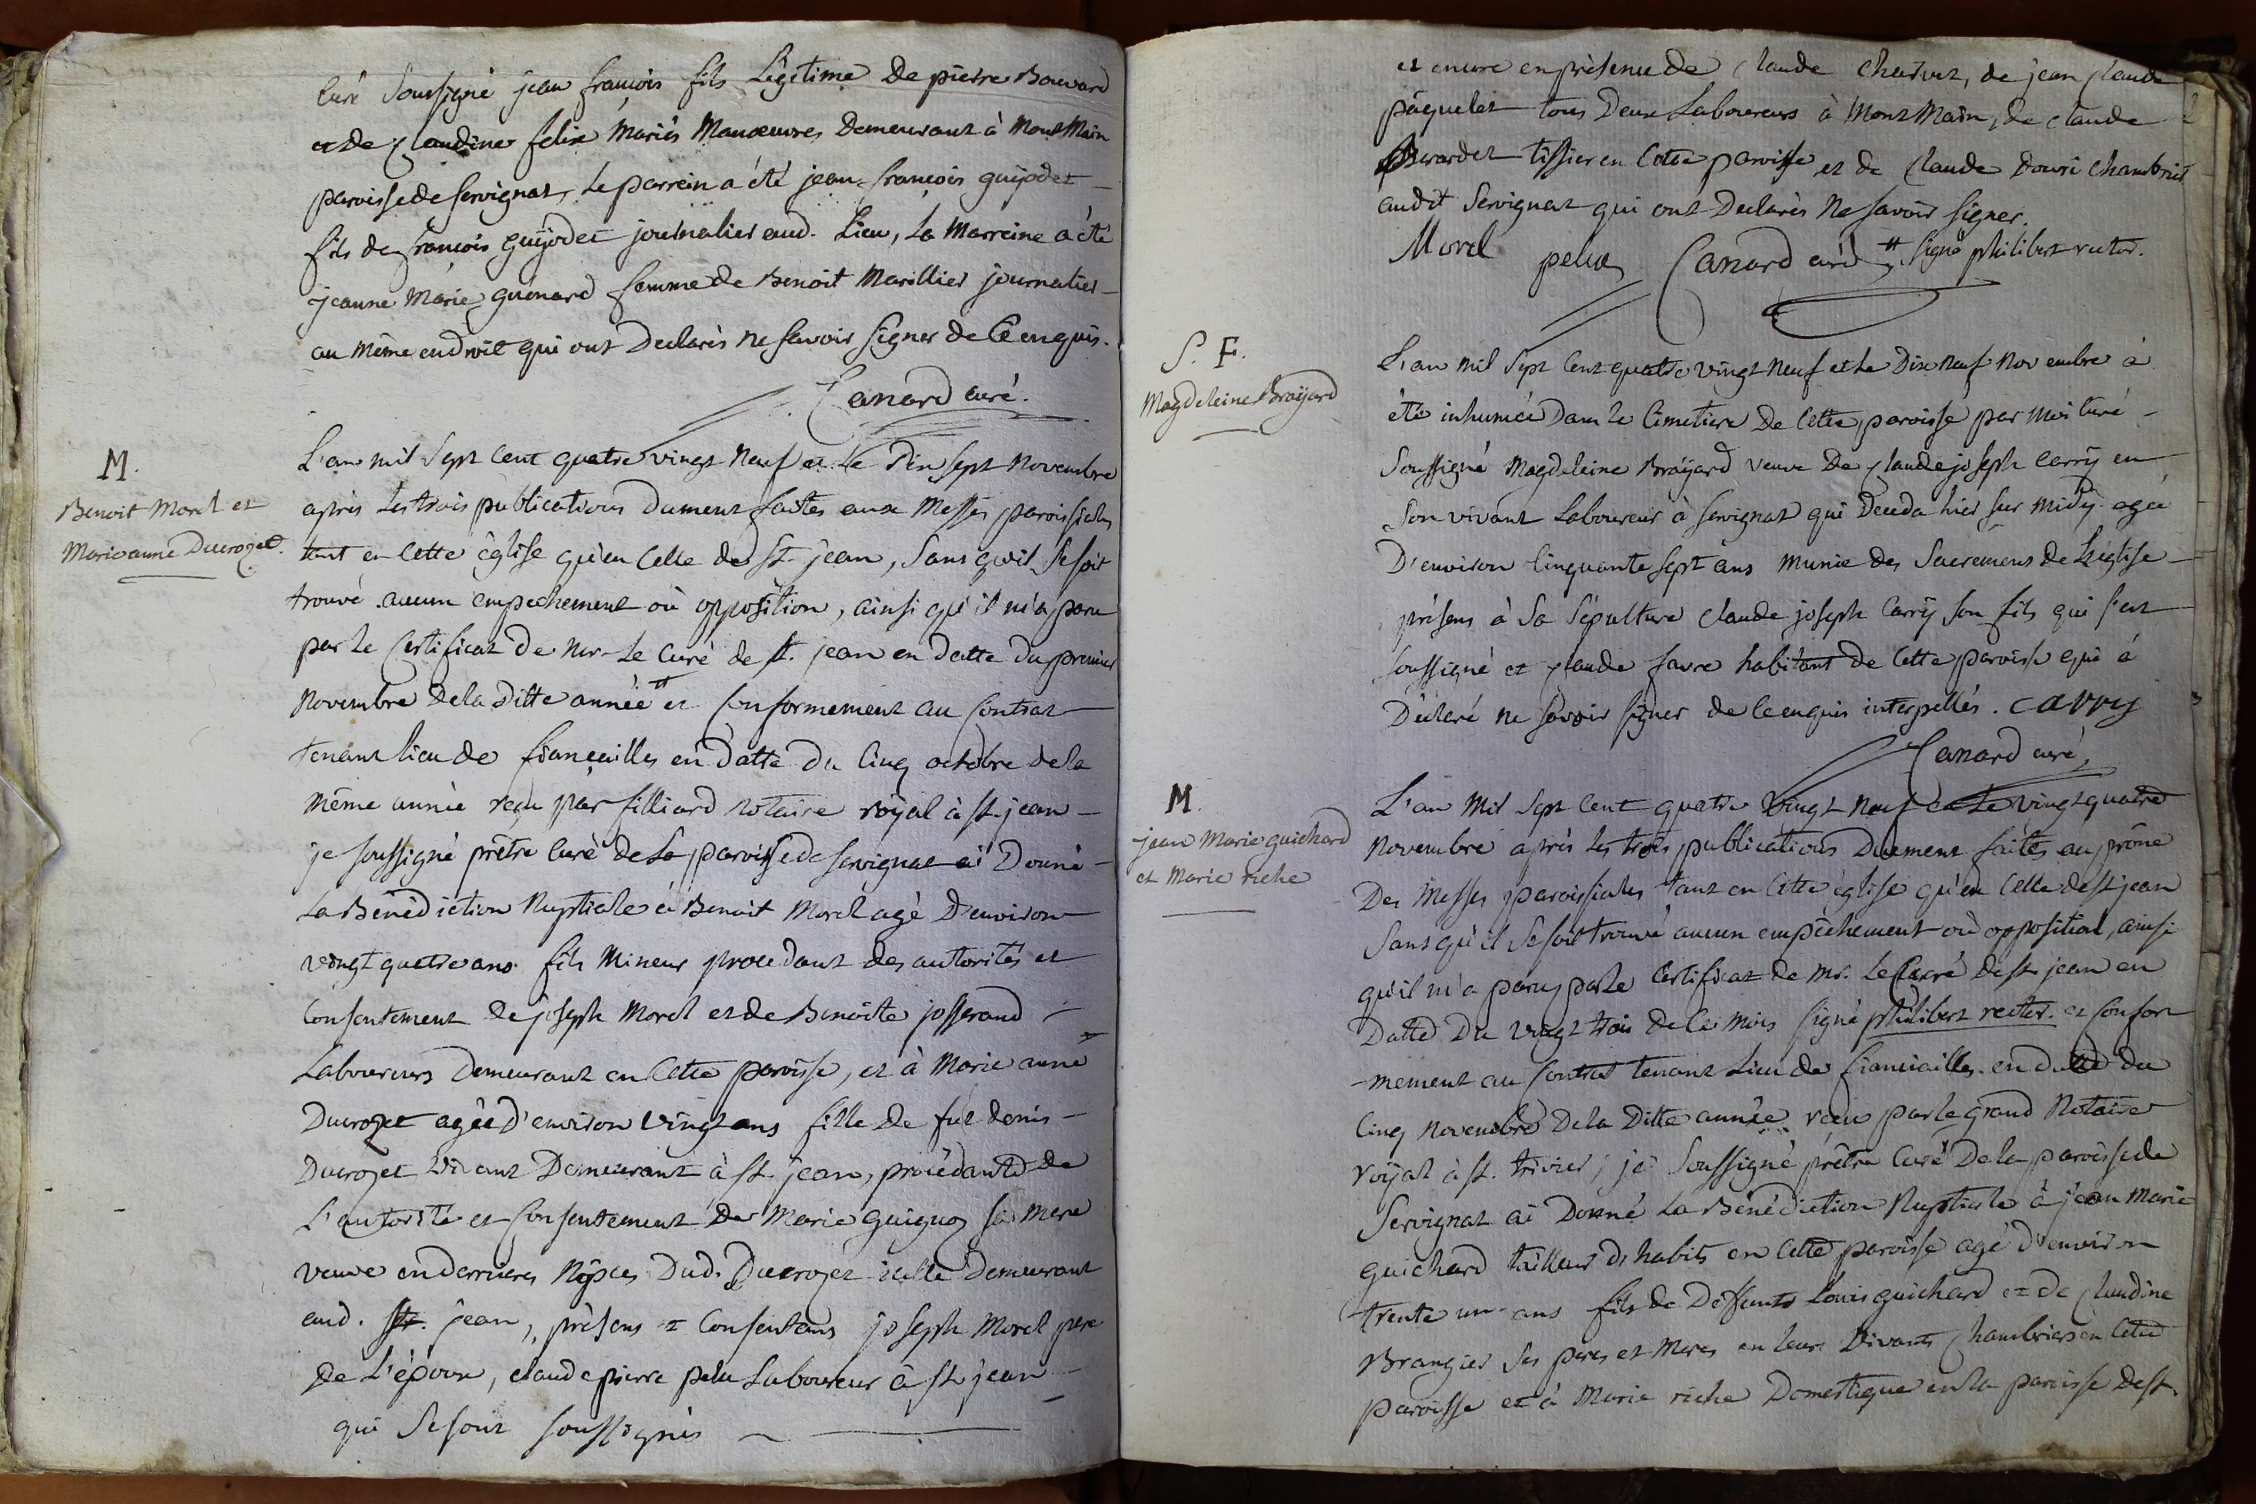 curé Soussigné jean francois fils Légitime de pierre Bouvard
et de Claudine felix Mariés Manoeuvres demeurant à MontMain
paroisse de Servignat, Le parrein a été jean-francois guÿodet
fils de francois guÿodet journalier aud. Lieu, La Marreine a été
jeanne Marie guénard femme de Benoit Marillier journalier
au même endroit qui ont Declarés ne Savoir Signer de Ce enquis.
Canard curé.
M.
Benoit Morel et
Marie anne Ducrozet.
L'an mil Sept Cent quatre vingt Neuf et Le Dix Sept Novembre
après Les trois publications dument faites aux Messes paroissiales
tant en Cette église qu'en Celle de St. jean, Sans qu'il Se soit
trouvé aucun empechement où opposition, ainsi qu'il m'a paru
par le Certificat de Mr. Le Curé de St. jean en Datte du premier
Novembre De la Ditte année # et Conformement au Contrat
tenant lieu de fiançailles en Datte du Cinq octobre de la
Même année reçu par filliard Notaire roÿal à St. jean
je Soussigné prêtre Curé de La paroisse de Servignat ai Donné
La Bénédiction Nuptiale à Benoit Morel agé D'environ
vingt quatre ans fils Mineur procedant des autorités et
Consentement de joseph Morel et de Benoîte josserand
Laboureurs demeurant en Cette paroisse, et à Marie anne
Ducrozet agée d'environ vingt ans fille de fut denis
Ducrozet vivant Demeurant à St. jean, procédante de
L'autorité et Consentement de Marie guiguoz sa Mere
veuve en derrieres Nôpces Dud. Ducrozet icelle Demeurant
aud. St. jean, présens et Consentans joseph Morel pere
de L'époux, claude pierre pelu Laboureur à St jean
qui Se sont soussignés
et encore en présence de Claude Charvet, de jean Claude
paquelet tous Deux Laboureurs à Mont Main, de Claude
Berardet tissier en Cette paroisse et de Claude Douri Chambrier
audit Servignat qui ont Declarés Ne savoir signer.
Morel pelux Canard curé # Signé philibert rector.
S. F.
Magdeleine Braÿard
L'an mil Sept Cent quatre vingt Neuf et Le Dix Neuf Novembre à
été inhumée Dans le Cimetiere De Cette paroisse par moi Curé
Soussigné Magdeleine Braÿard veuve De Claude joseph Carrÿ en
Son vivant Laboureur à Servignat qui Deceda hier sur midÿ agée
D'environ Cinquante Sept ans munie des Sacremens de L'église
présens à Sa Sépulture Claude joseph Carrÿ Son fils qui s'est
soussigné et Claude favre habitant de Cette paroisse qui à
Déclaré ne Savoir signer de Ce enquis interpellés. Carry
Canard curé,
M.
jean Marie guichard
et Marie riche
L'an Mil Sept Cent quatre vingt Neuf et Le vingt quatre
Novembre après Les trois publications Duement faites au prône
Des Messes paroissiales tant en Cette église qu'en Celle de St. jean
Sans qu'il Se soit trouvé aucun empêchement où opposition, ainsi
qu'il m'a paru par le Certificat de Mr. Le Curé de St. jean en
Datte Du vingt trois de Ce Mois Signé philibert rector. et Confor
-mement au Contrat tenant Lieu de fianciailles en datte du
Cinq Novembre De la Ditte année recu par le grand Notaire
roÿal à St. trivier, je Soussigné prêtre Curé De la paroisse de
Servignat ai Donné La Bénédiction Nuptiale à jean Marie
guichard tailleur d'habits en Cette paroisse agé d'environ
trente un ans fils de Deffunts Louis guichard et de Claudine
Brangier Ses peres et Meres en leurs vivants Chambriers en Cette
paroisse et à Marie riche Domestique en la paroisse de St.